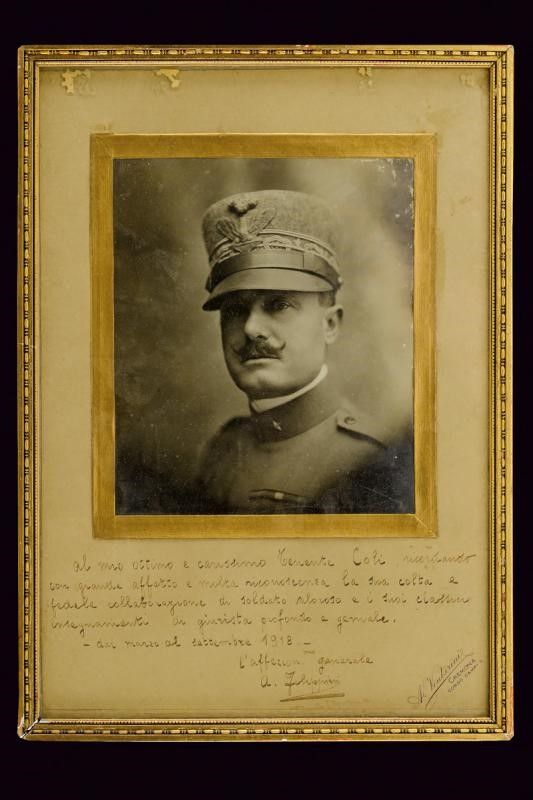 Al mio ottimo e carissimo Tenente Coli, ricordando
con grande affetto e molta riconoscenza la sua colta e
fedele collaborazione di soldato valoroso e i suoi classici
insegnamenti di giurista profondo e geniale.
- dal marzo al settembre 1918. -
l'affezion.mo generale
A.
CREMONA
CORSO